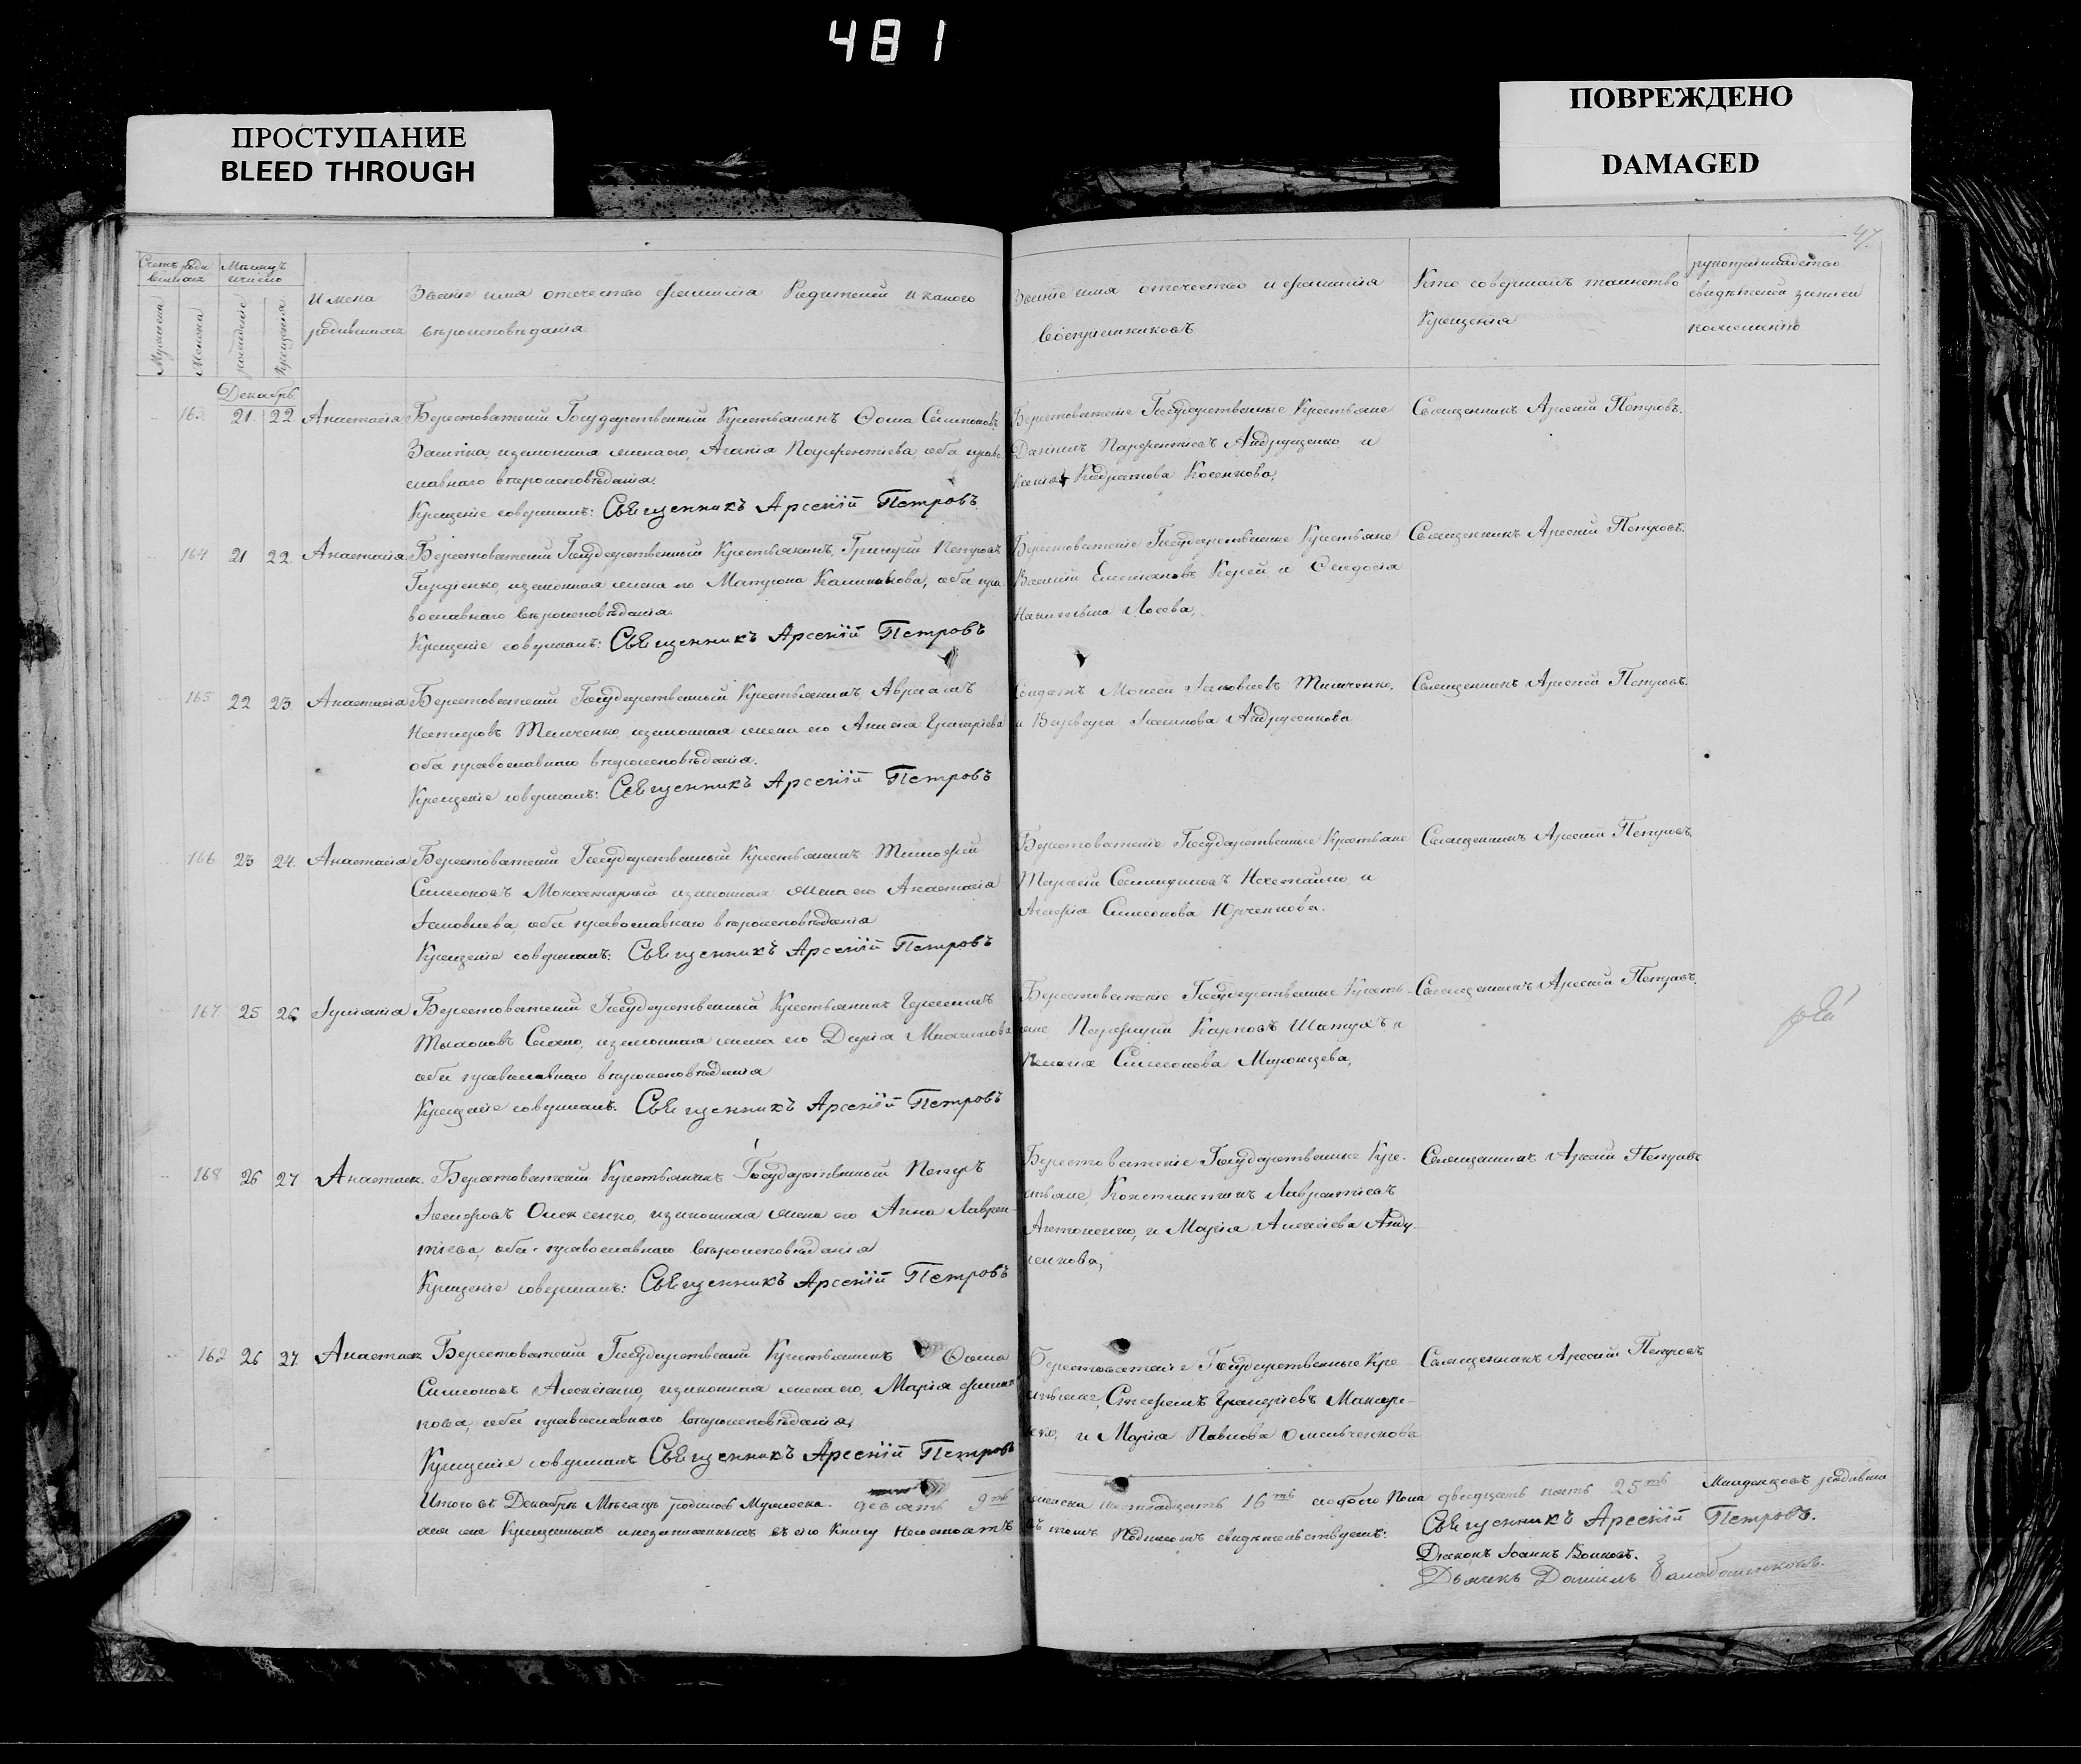 481
ПРОСТУПАНИЕ
BLEED THROUGH
ПОВРЕЖДЕНО
DAMAGED
47
Счетъ роди
вшихся
Мѣсяцъ
и число
Мужеска
Женска
рожденіе
Крещенія
Имена
родившихся
Званіе имя отечество фамилія Родителей и какого
вѣроисповѣданія
Званіе имя отечество и фамилія
Воспріемниковъ
Кто совершалъ таинство
Крещенія
рукоприкладство
свидѣтелей записи
по желанію
Декабрь
163 21 22 Анастасія Берестоватскій Государственный Крестьянинъ Ѳома Симоновъ
Заика, изаконная жена его, Агапія Парфентіева, оба право
славнаго вѣроисповѣданія
Крещеніе совершалъ: Священникъ Арсеній Петровъ
Берестоватскіе Государственные Крестьяне
Даніилъ Парфентіевъ Андрущенко и
Ксенія Кодратова Косенкова,
Священникъ Арсеній Петровъ.
164 21 22 Анастасія Берестоватскій Государственный Крестьянинъ, Григорій Петровъ
Гордіенко, изаконная жена его Матрона Калиникова, оба пра
вославнаго вѣроисповѣданія
Крещеніе совершалъ: Священникъ Арсеній Петровъ
Берестоватскіе Государственные Крестьяне
Василій Емельяновъ Корей и Ѳеодосія
Лосева,
Священникъ Арсеній Петровъ.
165 22 23 Анастасія Берестоватскій Государственный Крестьянинъ Авраамъ
Несторовъ Тимченко, изаконная жена его Анна Григоріева
оба православнаго вѣроисповѣданія.
Крещеніе совершалъ: Священникъ Арсеній Петровъ
Солдатъ Моисей Іаковлевъ Тимченко,
и Варвара Іакимова Андрусенкова
Священникъ Арсеній Петровъ.
166 23 24 Анастасія Берестоватскій Государственный Крестьянинъ Тимофей
Симеоновъ Монастырный изаконная жена его Анастасія
Іаковлева, оба православнаго вѣроисповѣданія
Крещеніе совершалъ: Священникъ Арсеній Петровъ
Берестоватскіе Государственные Крестьяне
Тарасій Нехетайло, и
Агафія Симеонова Юрченкова.
Священникъ Арсеній Петровъ.
167 25 26 Іуліанія Берестоватскій Государственный Крестьянинъ
изаконная жена его Дарія
оба православнаго вѣроисповѣданія
Крещеніе совершалъ. Священникъ Арсеній Петровъ
Берестоватскіе Государственные Кресть-
яне Порфирій Карповъ Шатухъ и
Пелагія Симеонова Миронцева,
Священникъ Арсеній Петровъ.
168 26 27 Анастас. Берестоватскій Крестьянинъ Государственный Петръ
Іосифовъ Олексенко, изаконная жена его Анна Лаврен-
тіева, оба православнаго вѣроисповѣданія
Крещеніе совершалъ: Священникъ Арсеній Петровъ
Берестоватскіе Государственные Кре-
стьяне, Константинъ Лаврентіевъ
Антоненко, и Марія Алексіева Анду-
сенкова,
Священникъ Арсеній Петровъ
162 26 27 Анастас Берестоватскій Государственный Крестьянинъ Ѳома
Симеоновъ Алексіенко, изаконная жена его, Марія
кова, оба православнаго вѣроисповѣданія,
Крещеніе совершалъ Священникъ Арсеній Петровъ
Берестоватскіе Государственные Кре-
стьяне, Стефанъ Григоріевъ Макаре-
нко, и Марія Павлова Омельченкова
Священникъ Арсеній Петровъ
Итого въ Декабрѣ Мѣсяцѣ родилось Мужеска. девять 9ть женска шестнадцать 16ть обоего Пола двадцать пять 25ть Младенцовъ родивши
хся не Крещенныхъ инезаписанныхъ въ сію Книгу Неостаетъ въ томъ Подписомъ свидѣтельствуемъ:
Священникъ Арсеній Петровъ.
Діаконъ Іоаннъ Волковъ.
Дьячекъ Даніилъ